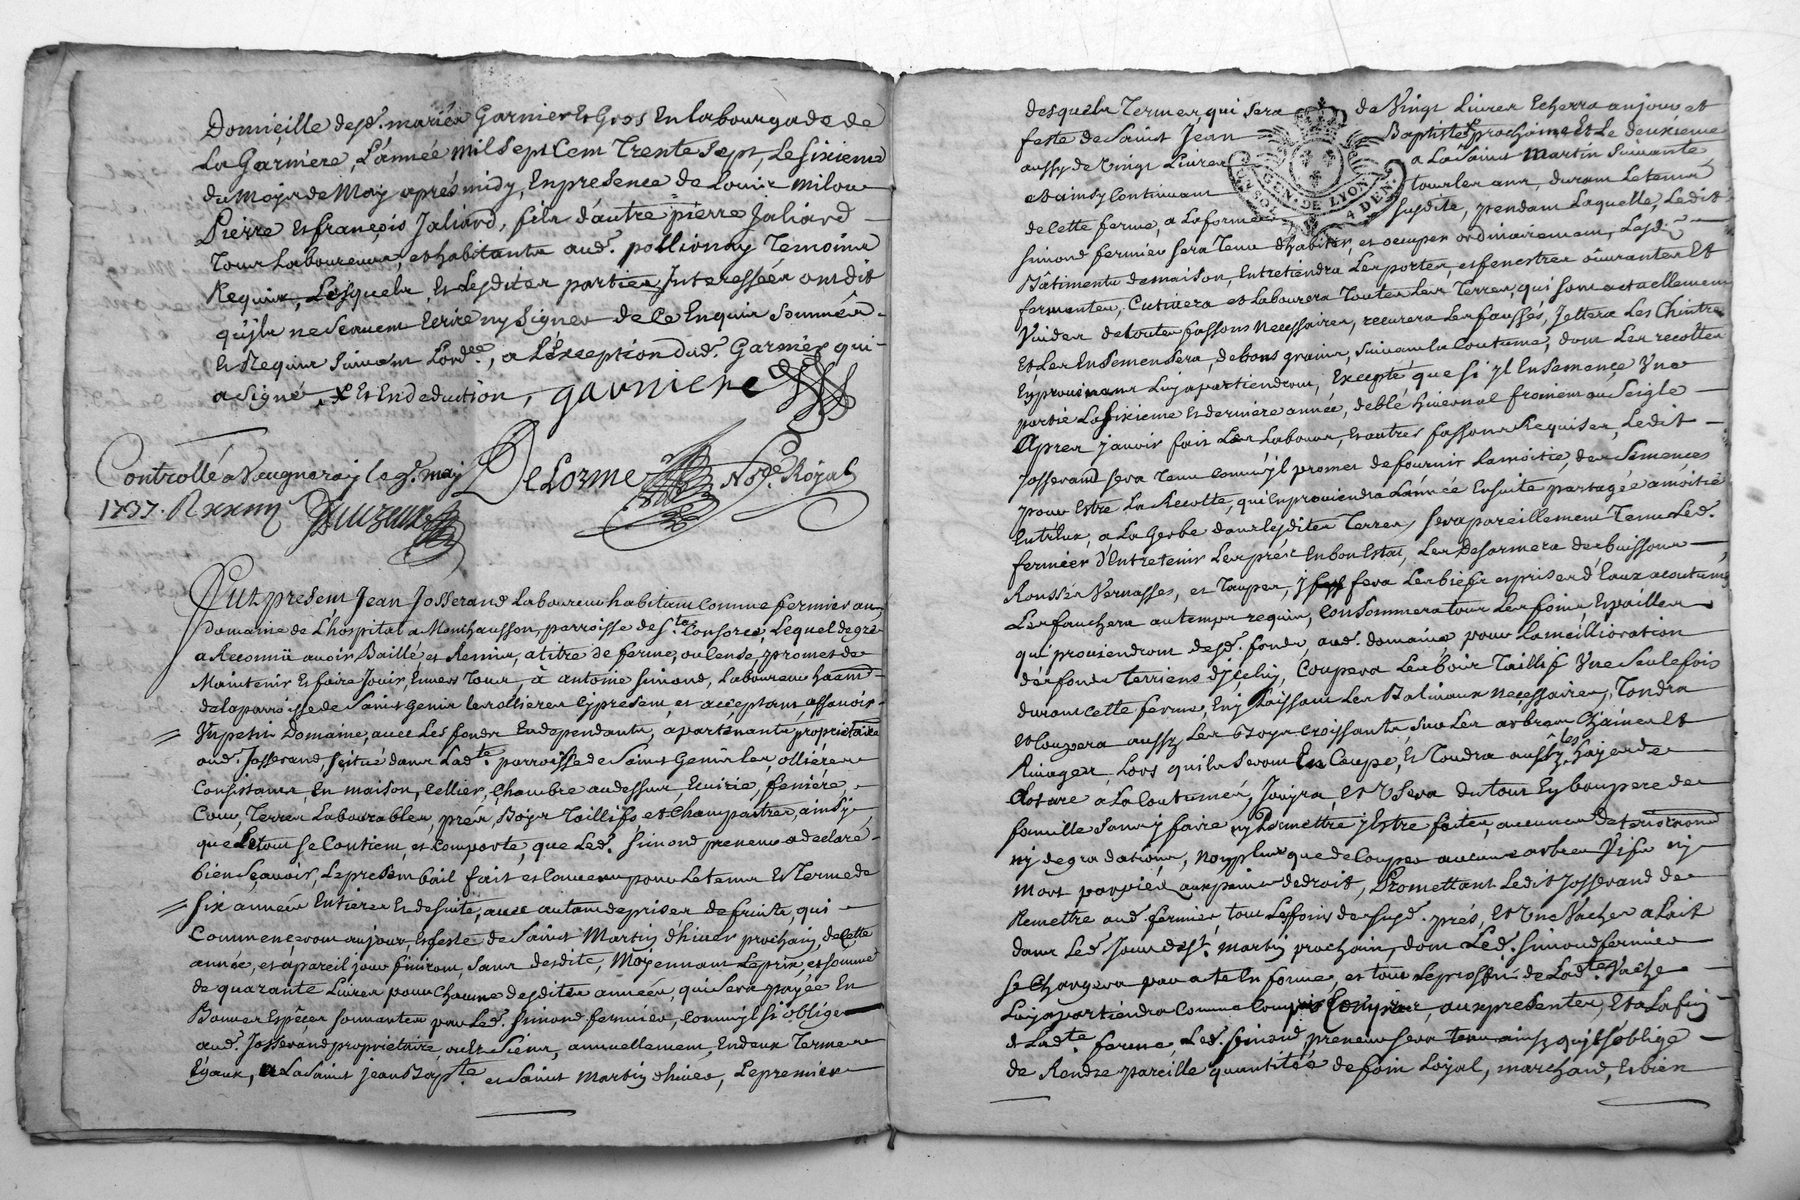 Domicille desd. mariés Garnier et Gros En labourgade de
La Garniere, L'année mil sept Cent Trente Sept, Le sixieme
du Moys de May aprés midy, En presence de Louis milou
Pierre et françois Jaliard, fils d'autre pierre Jaliard
Tous Laboureurs, et habitants aud. pollionay Temoins
Requis, Lesquels, et Lesdites parties Interessées ont dit
qu'ils ne scavent Ecrire ny signer de Ce Enquis sommés
et Requis suivant Lord.ce, a L'exception dud. Garnier qui
a signé, et En deduction, garniere
Controllé a Vaugneray le 9e. may DeLorme No.re Royal
1737. R
Fut present Jean Josserand Laboureur habitant comme fermier au
domaine de L'hospital a Monthausson, parroisse de S.te Consorce, Lequel de gré
a Reconnü avoir Baillé et Remis, a titre de ferme, ou Cense, promet de
Maintenir et faire Jouir, Envers Tous, à antoine simond, Laboureur
de la parroisse de Saint Genis les ollieres Cy present, et acceptant, assavoir
Un petit Domaine, avec Les fonds En dependants, apartenants proprietaire
aud. Josserand, scitué dans Lad.te parroisse de Saint Genis les ollieres
Consistants, En maison, Cellier, Chambre au dessus, Ecurie, feniere,
Cour, Terres Labourables, prés, Boys Taillifs et Champastres, ainsy
que Le tout se Contient, et Comporte, que Led. simond preneur a declaré
bien sçavoir, Le present bail fait et Convenu pour Le tems Et Terme de
six années Entieres Et de suite, avec autant de prises de fruits, qui
Commenceront au jour, et feste de Saint Martin d'hiver prochain, de Cette
année, et a pareil jour finiront, sans dédite, Moyennant Le prix et somme
de quarante Livres pour Chacune desdites années, qui sera payée En
Bonnes Espéces sonnantes par Led. simond fermier, Comm'il s'i oblige
aud. Josserand proprietaire, ou Es Siens, annuellement, En deux Termes
Egaux, a La Saint Jean Bap.te et Saint Martin d'hiver, Le premier
desquels Termes, qui sera de Vingt Livres Echerra au jour et
feste de Saint Jean Baptiste prochaine Et Le deuxieme
aussy de Vingt Livres a La Saint Martin suivante,
et ainsy Continuant tous les ans, durant Le tems
GEN. DE LYON
4 DEN
de Cette ferme, a La forme susdite, pendant Laquelle, Ledit
simond fermier sera Tenu d'habiter, et occuper ordinairement Lesd.
Bâtiments de maison, Entretiendra Les portes, et fenestres ouvrantes Et
fermantes, Cutivera et Labourera Toutes Les Terres, qui sont actuellement
Vuides de toutes fassons Necessaires, recurera Les fausses, Jettera Les Chintres
Et Les Ensemensera, de bons grains, suivant la Coutume, dont Les recoltes
En provenants Luy apartiendront, Excepté que si yl Ensemençe Une
partie La sixieme et derniere année, de blé hivernal froment ou Seigle
Apres y avoir fait Les Labours, et autres fassons Requises, Ledit
Josserand sera Tenu comm'yl promet de fournir La moitié, des Semences
pour Estre La Recolte, qui En proviendra L'année Ensuite partagée a moitié
Entr'Eux, a La Gerbe dans lesdites Terres, sera pareillement Tenu Led.
fermier d'Entretenir Les prés En bon Estat, Les Desarmera des buissons
Ronsses Vernasses, et Taupes, y fera Les biefs et prises d'Eaux acoutumés
Les fauchera au temps requis, Consommera tous Les foins Et pailles
qui proviendront desd. fonds, aud. domaine pour La meillioration
des fonds terriens d'jceluy, Coupera Les bois Taillifs Une seule fois
durant cette ferme, En y Laissant Les Balivaux necessaires, Tondra
et Coupera aussy Les boys croissants sur Les arbres Et
Rivages Lors qu'ils seront En Coupe, Et Tondra aussy les hayes de
Closture a La Coutumée, Jouyra, Et Usera du tout En bon pere de
famille sans y faire ny Permettre y Estre faites, aucunes deteriorations
ny degradations, Non plus que de Couper aucuns arbres Vifs ny
Mort par pied, aux peines de droit, Promettant Ledit Josserand de
Remettre aud. fermier tous Les foins des susd. prés, Et Une Vache a Lait
dans Led. Jour de S.t Martin prochain, dont Led. simond fermier
se Chargera par acte En forme, et tout Le profit de Lad.te Vache
Luy apartiendra Comme Compris aux presentes, Et a La fin
de Lad.te ferme, Led. Simond preneur sera tenu ainsy qu'il s'oblige
de Rendre pareille quantitée de foin Loyal, marchand, Et bien